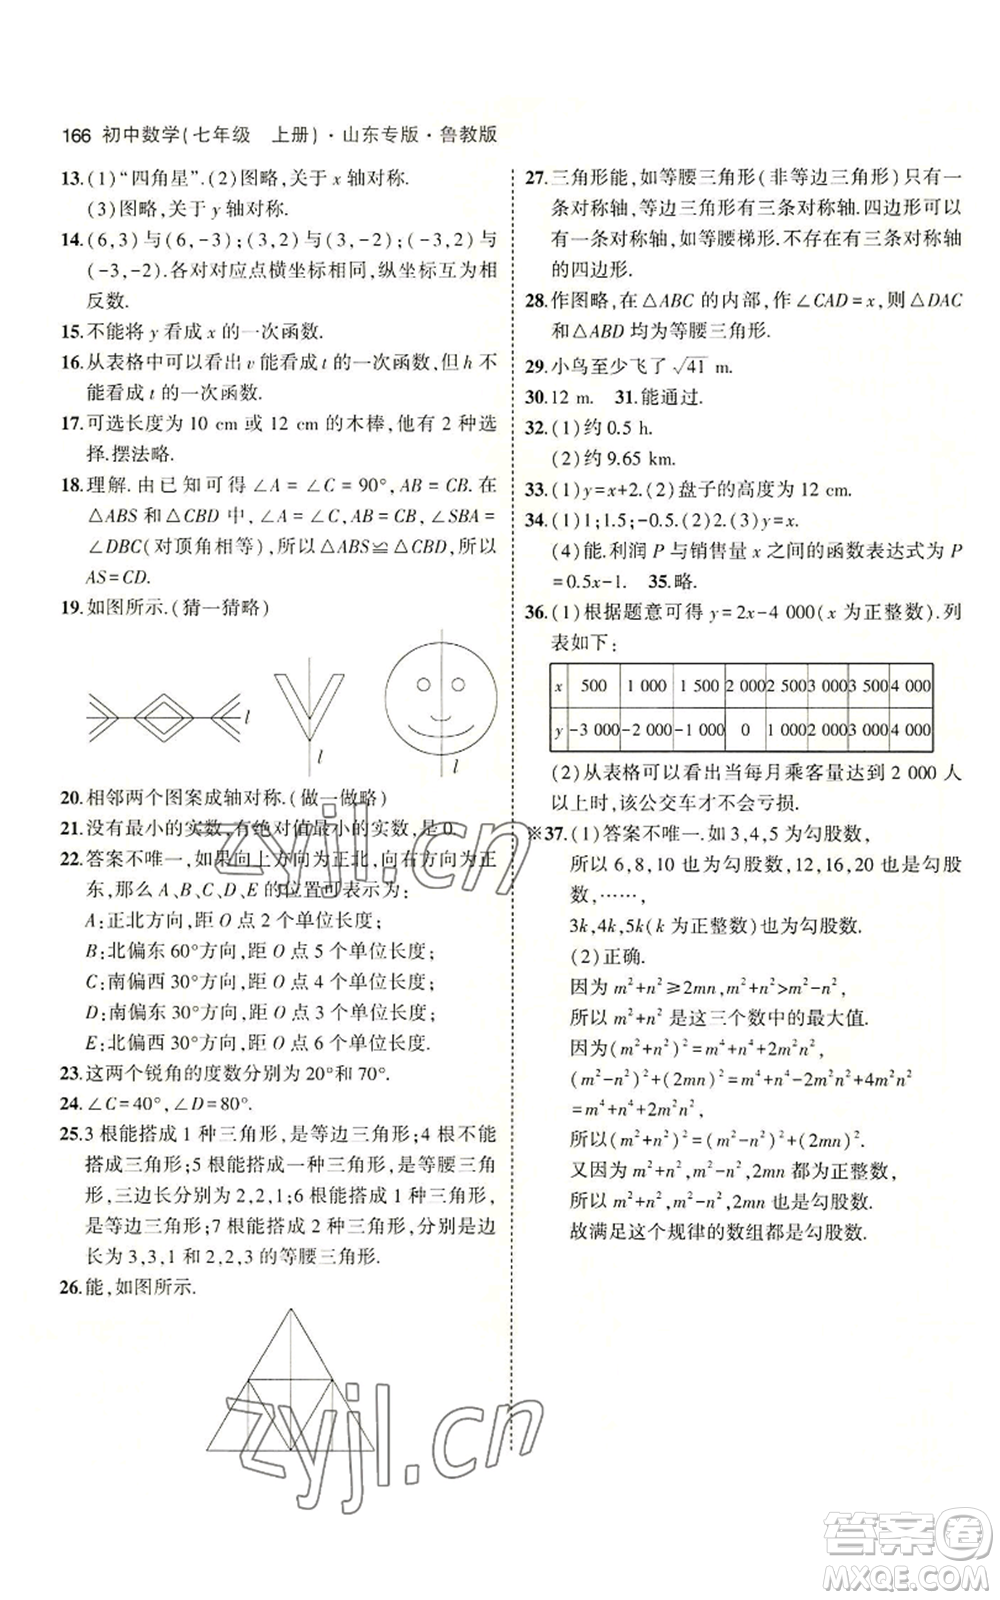 166 初中数学(七年级 上册)·山东专版·鲁教版
13.(1)“四角星”.(2)图略,关于 x 轴对称.
(3)图略,关于 y 轴对称.
14.(6,3)与(6,-3);(3,2)与(3,-2);(-3,2)与
(-3,-2).各对对应点横坐标相同,纵坐标互为相
反数.
15.不能将 y 看成 x 的一次函数.
16.从表格中可以看出 v 能看成 t 的一次函数,但 h 不
能看成 t 的一次函数.
17.可选长度为 10 cm 或 12 cm 的木棒,他有 2 种选
择.摆法略.
18.理解.由已知可得∠A=∠C=90°,AB=CB.在
△ABS 和△CBD 中,∠A=∠C,AB=CB,∠SBA=
∠DBC(对顶角相等),所以△ABS≌△CBD,所以
AS=CD.
19.如图所示.(猜一猜略)
l
l
l
20.相邻两个图案成轴对称.(做一做略)
21.没有最小的实数,有绝对值最小的实数,是 0.
22.答案不唯一,如果向上方向为正北,向右方向为正
东,那么 A、B、C、D、E 的位置可表示为:
A:正北方向,距 O 点 2 个单位长度;
B:北偏东 60°方向,距 O 点 5 个单位长度;
C:南偏西 30°方向,距 O 点 4 个单位长度;
D:南偏东 30°方向,距 O 点 4 个单位长度;
E:北偏西 30°方向,距 O 点 6 个单位长度.
23.这两个锐角的度数分别为 20°和 70°.
24.∠C=40°,∠D=80°.
25.3 根能搭成 1 种三角形,是等边三角形;4 根不能
搭成三角形;5 根能搭成一种三角形,是等腰三角
形,三边长分别为 2,2,1;6 根能搭成 1 种三角形,
是等边三角形;7 根能搭成 2 种三角形,分别是边
长为 3,3,1 和 2,2,3 的等腰三角形.
26.能,如图所示.
27.三角形能,如等腰三角形(非等边三角形)只有一
条对称轴,等边三角形有三条对称轴.四边形可以
有一条对称轴,如等腰梯形.不存在有三条对称轴
的四边形.
28.作图略,在△ABC 的内部,作∠CAD=x,则△DAC
和△ABD 均为等腰三角形.
29.小鸟至少飞了 √41 m.
30.12 m. 31.能通过.
32.(1)约 0.5 h.
(2)约 9.65 km.
33.(1)y=x+2.(2)盘子的高度为 12 cm.
34.(1)1;1.5;-0.5.(2)2.(3)y=x.
(4)能.利润 P 与销售量 x 之间的函数表达式为 P
=0.5x-1. 35.略.
36.(1)根据题意可得 y=2x-4 000(x 为正整数).列
表如下:
x 500 1 000 1 500 2 000 2 500 3 000 3 500 4 000
y -3 000 -2 000 -1 000 0 1 000 2 000 3 000 4 000
(2)从表格可以看出当每月乘客量达到 2 000 人
以上时,该公交车才不会亏损.
※37.(1)答案不唯一.如 3,4,5 为勾股数,
所以 6,8,10 也为勾股数,12,16,20 也是勾股
数,……,
3k,4k,5k(k 为正整数)也是勾股数.
(2)正确.
因为 m²+n²≥2mn,m²+n²>m²-n²,
所以 m²+n² 是这三个数中的最大值.
因为(m²+n²)²=m⁴+n⁴+2m²n²,
(m²-n²)²+(2mn)²=m⁴+n⁴-2m²n²+4m²n²
=m⁴+n⁴+2m²n²,
所以(m²+n²)²=(m²-n²)²+(2mn)².
又因为 m²+n²,m²-n²,2mn 均为正整数,
所以 m²+n²,m²-n²,2mn 是勾股数.
故满足这个规律的数组都是勾股数.
zyjl.cn
zyjl.cn
答案卷
MXQE.COM